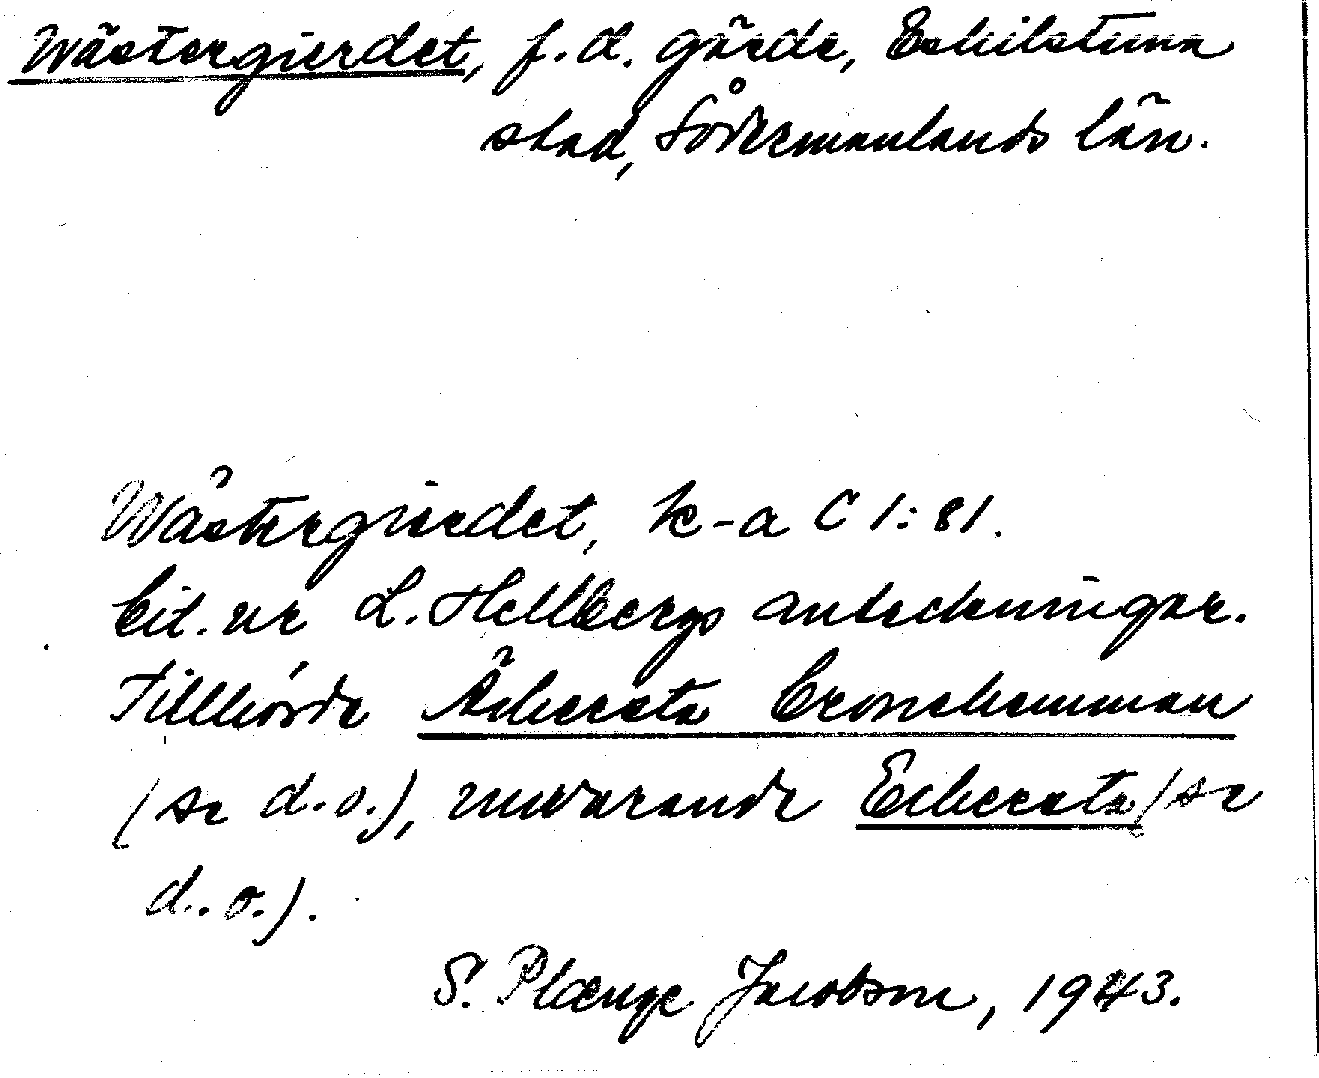 Wästergierdet, f.d. gärde, Eskilstuna
stad, Södermanlands län.
Wästergierdet, k-a C 1:81.
Cit. ur L. Hellbergs anteckningar.
Tillhörde Äckeresta Cronehemman
(se d.o.), nuvarande Eckeresta (se
d.o.).
S. Plænge Jacobson, 1943.